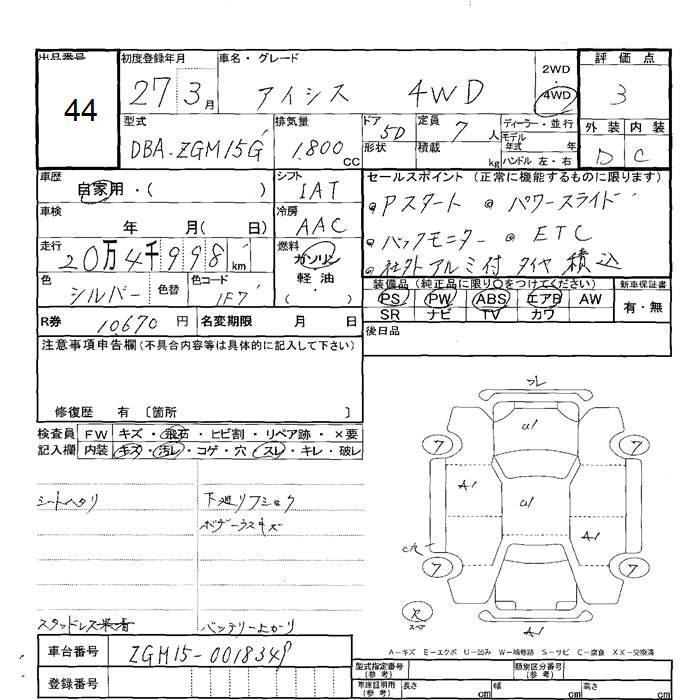 出品番号 初度登録年月 車名・グレード 2WD ・ 4WD 評価点
44 27 3月 アイシス 4WD 3
型式 排気量 ドア 5D 定員 7人 ディーラー・並行 外装 内装
DBA-ZGM15G 1,800cc 形状 積載 kg モデル年式 年 D C
ハンドル 左・右
車歴 自家用・( ) シフト IAT セールスポイント (正常に機能するものに限ります)
車検 年 月( 日) 冷房 AAC Pスタート パワースライド
走行 20万4千998km 燃料 ガソリン 軽油 ( ・ ) バックモニター ETC
社外アルミ付タイヤ積込
色 シルバー 色替 色コード 1F7 装備品 (純正品に限り○をつけてください) 新車保証書
PS PW ABS エアB AW 有・無
R券 10,670円 名変期限 月 日 SR ナビ TV カワ
注意事項申告欄(不具合内容等は具体的に記入して下さい) 後日品
修復歴 有 〔箇所 〕
検査員 FW キズ・飛石・ヒビ割・リペア跡・×要
記入欄 内装 キズ・汚レ・コゲ・穴・スレ・キレ・破レ
シートヘタリ 下廻りフショク
ボデーウスキズ
スタッドレス装着 バッテリー上がり
車台番号 ZGM15-0018349
登録番号
フレ
U1
7 7
A1 U1
A1
7 7
スペア
A1
A-キズ E-エクボ U-凹み W-補修跡 S-サビ C-腐食 XX-交換済
型式指定番号 (参考) 類別区分番号 (参考)
車庫証明用 (参考) 長さ cm 幅 cm 高さ cm